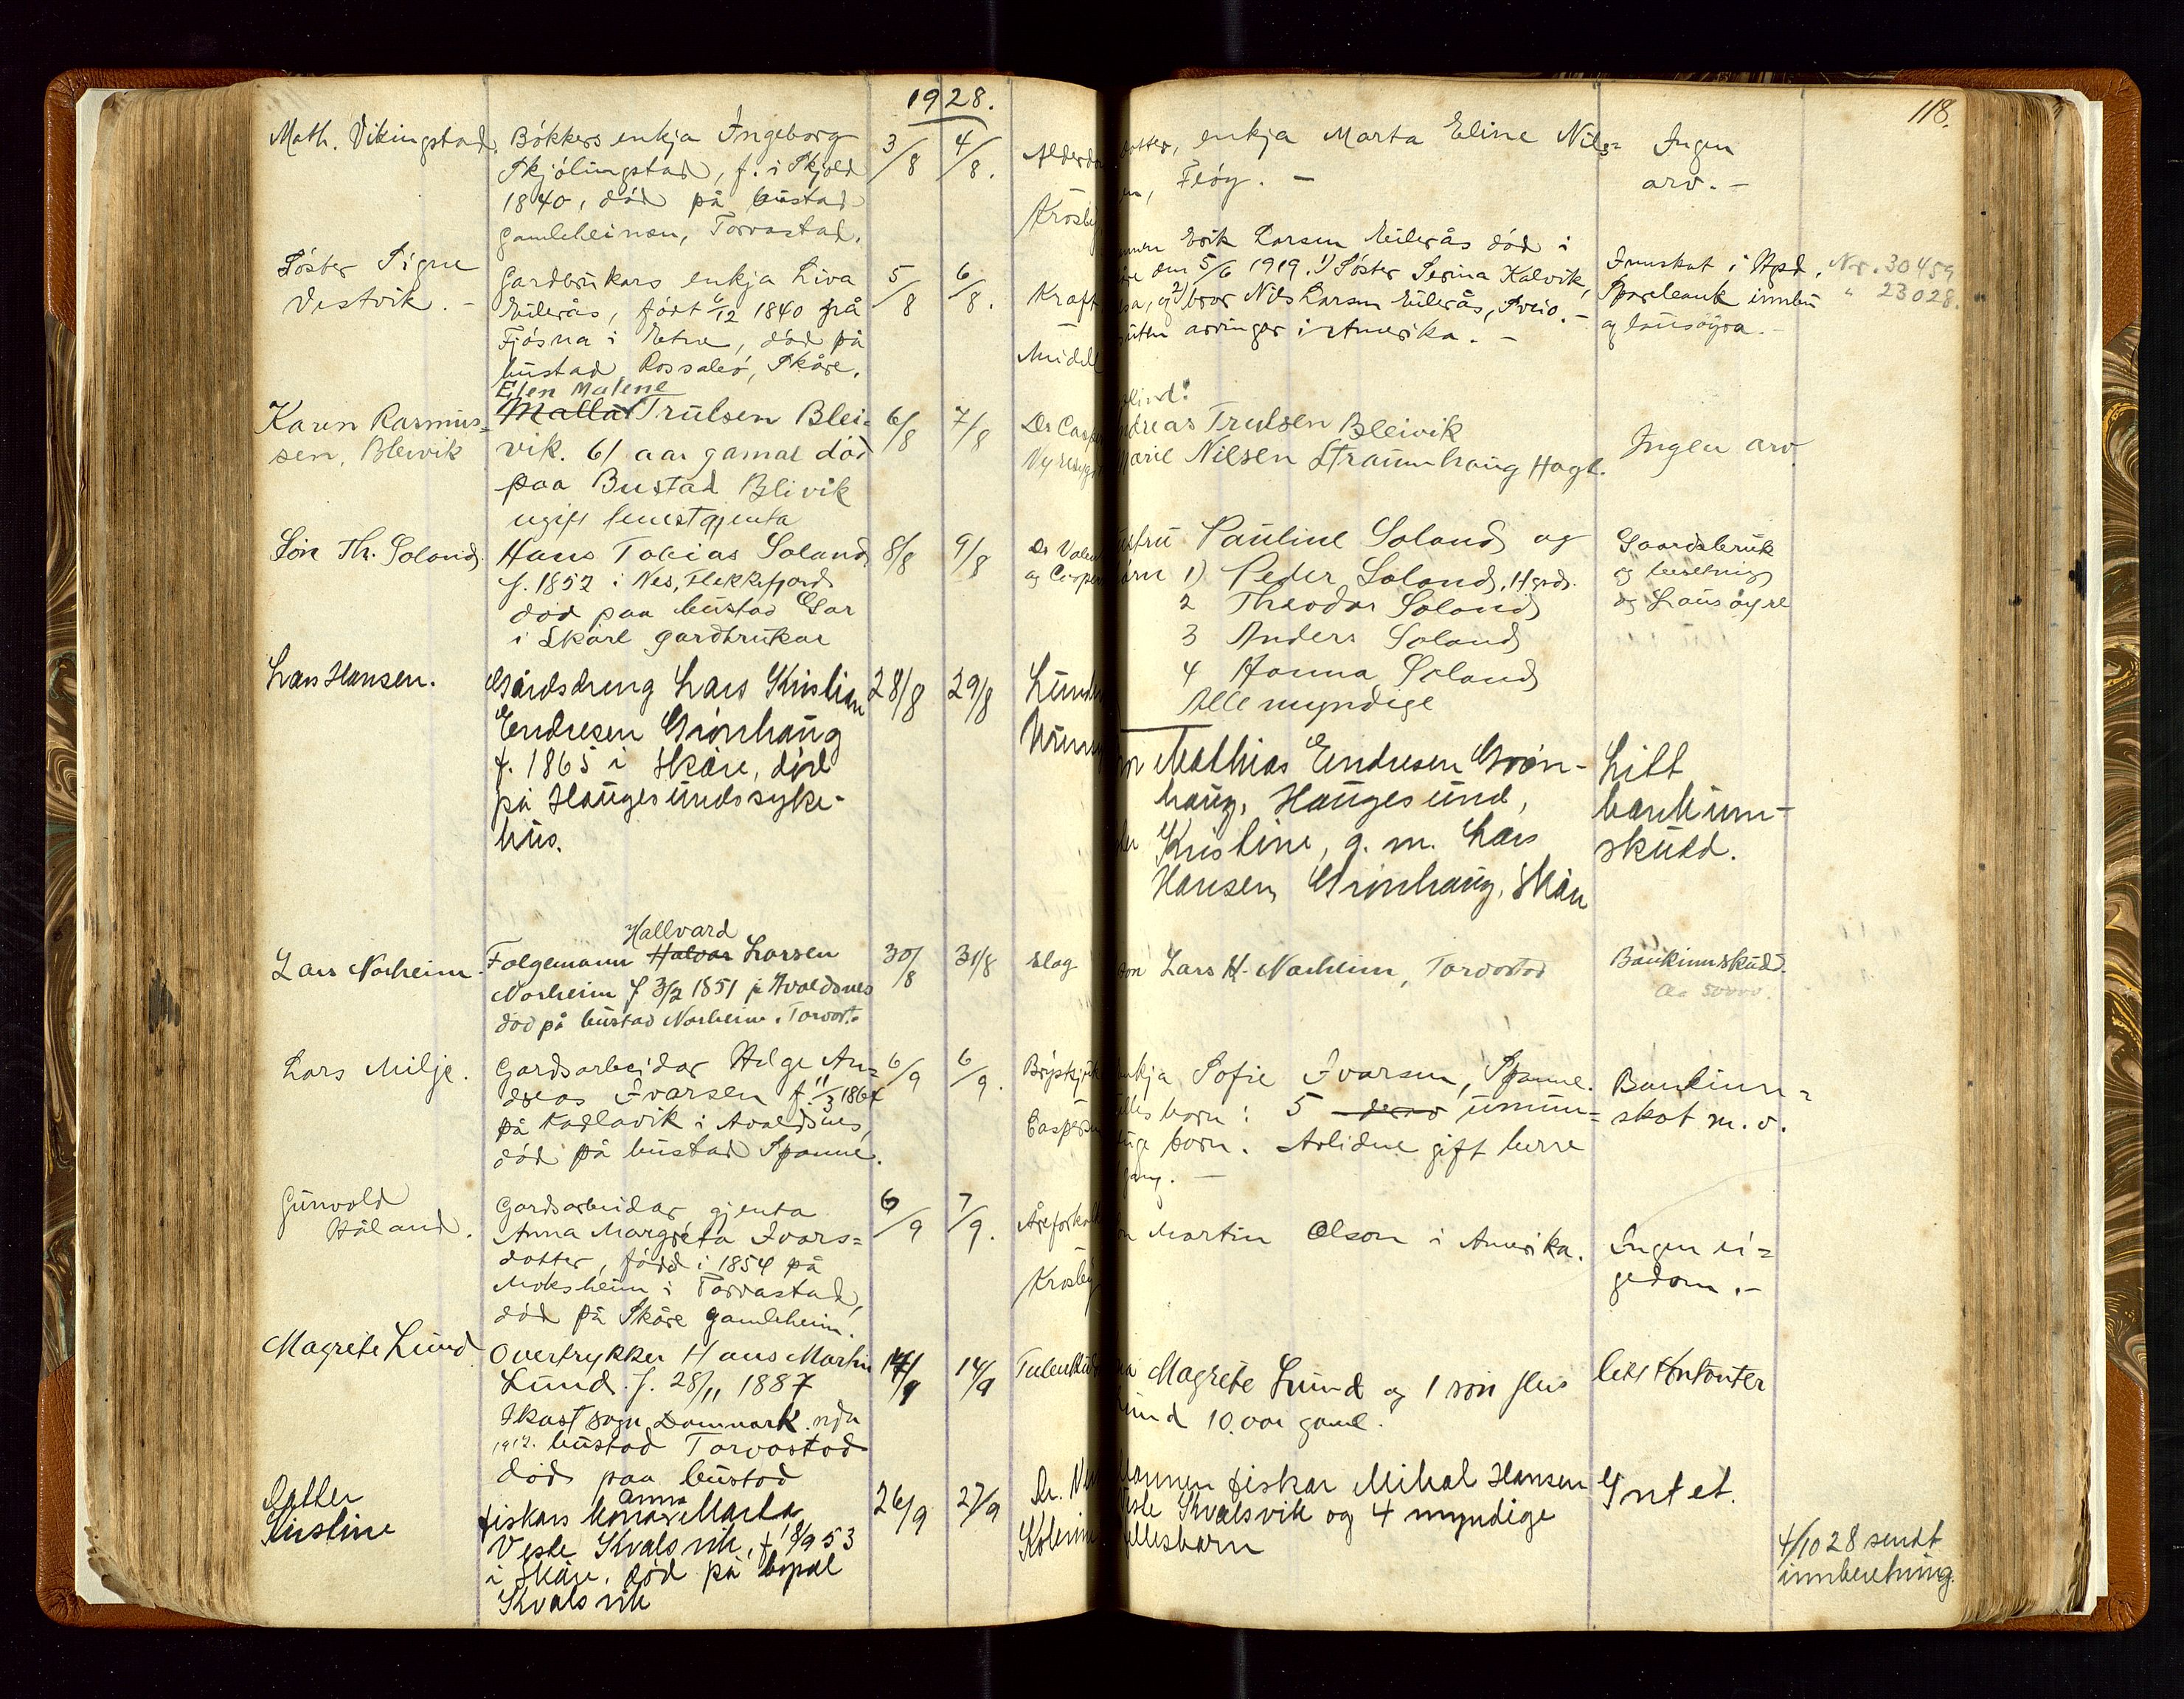 1928.
118.
Math. Vikingstad.
Bökkers enkja Ingeborg
Skjölingstad, f. i Skjold
1840, död på bustad
Gamleheimen, Torvastad.
3/8
4/8.
Krosby
dotter, enkja Marta Eline Nils=
Flöy. —
Ingen
arv. —
Söster Signe
Vestvik. —
Gardbrukars enkja Liva
Eilerås, född 6/12 1840 på
Fjösna i Etne, död på
bustad Rossabö, Skåre.
5/8
6/8.
Kraft
Middel
Erik Larsen Eilerås död i
den 5/6 1919. 1) Söster Serina Kalvik,
og 2) bror Nils Larsen Eilerås, Sveio. —
arvinger i Amerika. —
Innskot i Hgsd.
Sparebank innbu
og lausöyra. —
Nr. 30459
" 23028.
Karen Rasmus=
sen, Bleivik
Elen Malene
Malla Trulsen Blei=
vik. 61 aar gamal död
paa Bustad Blivik
ugift tenestgjenta
6/8
7/8
Dr Casper
blind!
Andreas Trulsen Bleivik
Marie Nilsen Straumhaug Hagl.
Ingen arv
Sön Th. Soland.
Hans Tobias Soland
f. 1857 i Nes, Flekkefjord
död paa bustad Gar
i Skåre gardbrukar
8/8
9/8
og Casper
Pauline Soland og
1) Peder Soland, Hgsd.
2 Theodor Soland
3 Anders Soland
4 Hanna Soland
Alle myndige
Gaardsbruk
og besetning
og Lausöyre
Lars Hansen.
Gårdsdreng Lars Kristian
Endresen Grönhaug
f. 1865 i Skåre, död
på Haugesunds syke-
hus.
28/8
29/8
Mathias Endresen Grön-
haug, Haugesund,
Kristine, g. m. Lars
Hansen, Grönhaug, Skåre
Litt
bankinn-
skudd.
Lars Norheim.
Hallvard
Folgemann Halvar Larsen
Norheim f 3/2 1851 i Avaldsnes
död på bustad Norheim. Torvast.
30/8
31/8
Slag
son Lars H. Norheim, Torvastad
Bankinnskudd.
Ca 50000.
Lars Milje.
Gardsarbeidar Helge An=
dreas Ivarsen f. 11/3 1864
på Kadlavik i Avaldsnes,
död på bustad Spanne.
6/9
6/9.
Caspersen
enkja Sofie Ivarsen, Spanne.
born: 5 derav umun=
dige born. Avlidne gift berre
gang. —
Bankinn=
skot m. v.
Gunvald
Håland.
Gardsarbeidar gjenta
Anna Margreta Ivars=
dotter, född i 1854 på
Moksheim i Torvastad,
död på Skåre gamleheim.
6/9
7/9.
Åreforkalk
Krosby
Martin Olson i Amerika.
Ingen ei=
gedom. —
Magrete Lund
Overtrykker Hans Martin
Lund. f. 28/11 1887
Ikast sogn Danmark.
1912. bustad Torvastad
död paa bustad
14/9
14/9
Magrete Lund og 1 son
Lund 10 aar gaml.
litt kontanter
Dotter
Kristine
anna
fiskars kona Marta
Vestre Kvalsvik, f 18/9 53
i Skåre, död på bopel
Kvalsvik
26/9
27/9
Mannen fiskar Mikal Hansen
Vestre Kvalsvik og 4 myndige
fellesbarn
Intet.
4/10 28 sendt
innberetning.